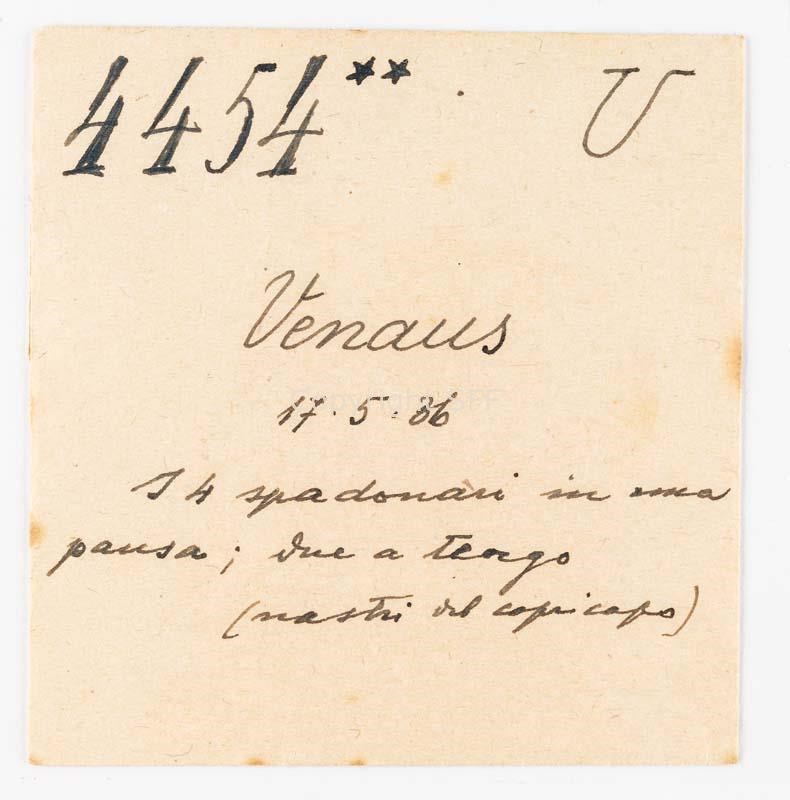 4454** . V
Venaus
17.5.36
I 4 spadonari in una
pausa; due a tergo
(nastri del copricapo)